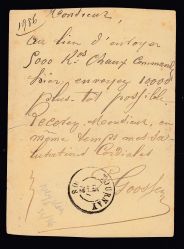 1986
Monsieur,
Au lieu d'envoyer
5000 Kos Chaux Command
hier, envoyez 10000
plus tot possible.
Recevez, Monsieur, en
même temps mes sa
lutations Cordiales
Goossens
TOURNAY